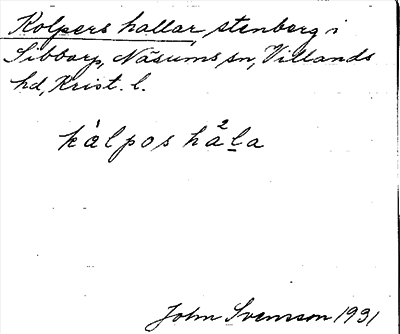 Kolpers hallar, stenberg i
Sibbarp, Näsums sn, Villands
hd, Krist. l.
kàlpos hä²la
John Svensson 1931